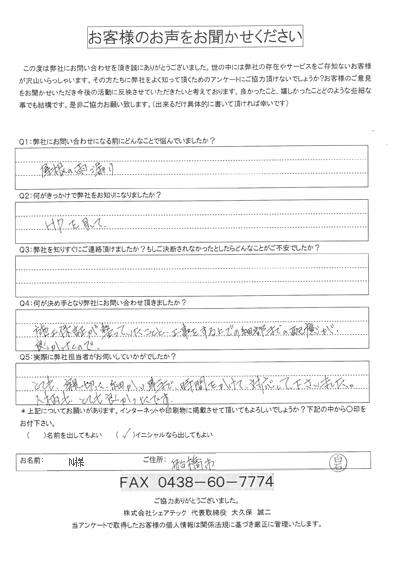 お客様のお声をお聞かせください
この度は弊社にお問い合わせを頂き誠にありがとうございました。世の中には弊社の存在やサービスをご存知ないお客様
が沢山いらっしゃいます。その方たちに弊社をよく知って頂くためのアンケートにご協力頂けないでしょうか?お客様のご意見
をお聞かせいただき今後の活動に反映させていただきたいと考えております。良かったこと、嬉しかったことどのような些細な
事でも結構です。是非ご協力お願い致します。(出来るだけ具体的に書いて頂ければ幸いです)
Q1:弊社にお問い合わせになる前にどんなことで悩んでいましたか?
屋根の雨漏り
Q2:何がきっかけで弊社をお知りになりましたか?
HPを見て、
Q3:弊社を知りすぐにご連絡頂けましたか?もしご決断されなかったとしたらどんなことがご不安でしたか?
Q4:何が決め手となり弊社にお問い合わせ頂きましたか?
施工保証が整っていたこと、工事をする上での細部までの配慮が、
良かったので。
Q5:実際に弊社担当者がお伺していかがでしたか?
とても、親切で、細かい事まで、時間をかけて、対応して下さいました。
人柄も、とても良かったです。
*上記についてお願いがあります。インターネットや印刷物に掲載させて頂いてもよろしいでしょうか?下記の中から〇印を
お付下さい。
( )名前を出してもよい (✓)イニシャルなら出してもよい
お名前: 様 ご住所: 船橋市 白石
FAX 0438-60-7774
ご協力ありがとうございました。
株式会社シェアテック 代表取締役 大久保 誠二
当アンケートで取得したお客様の個人情報は関係法規に基づき厳正に管理いたします。